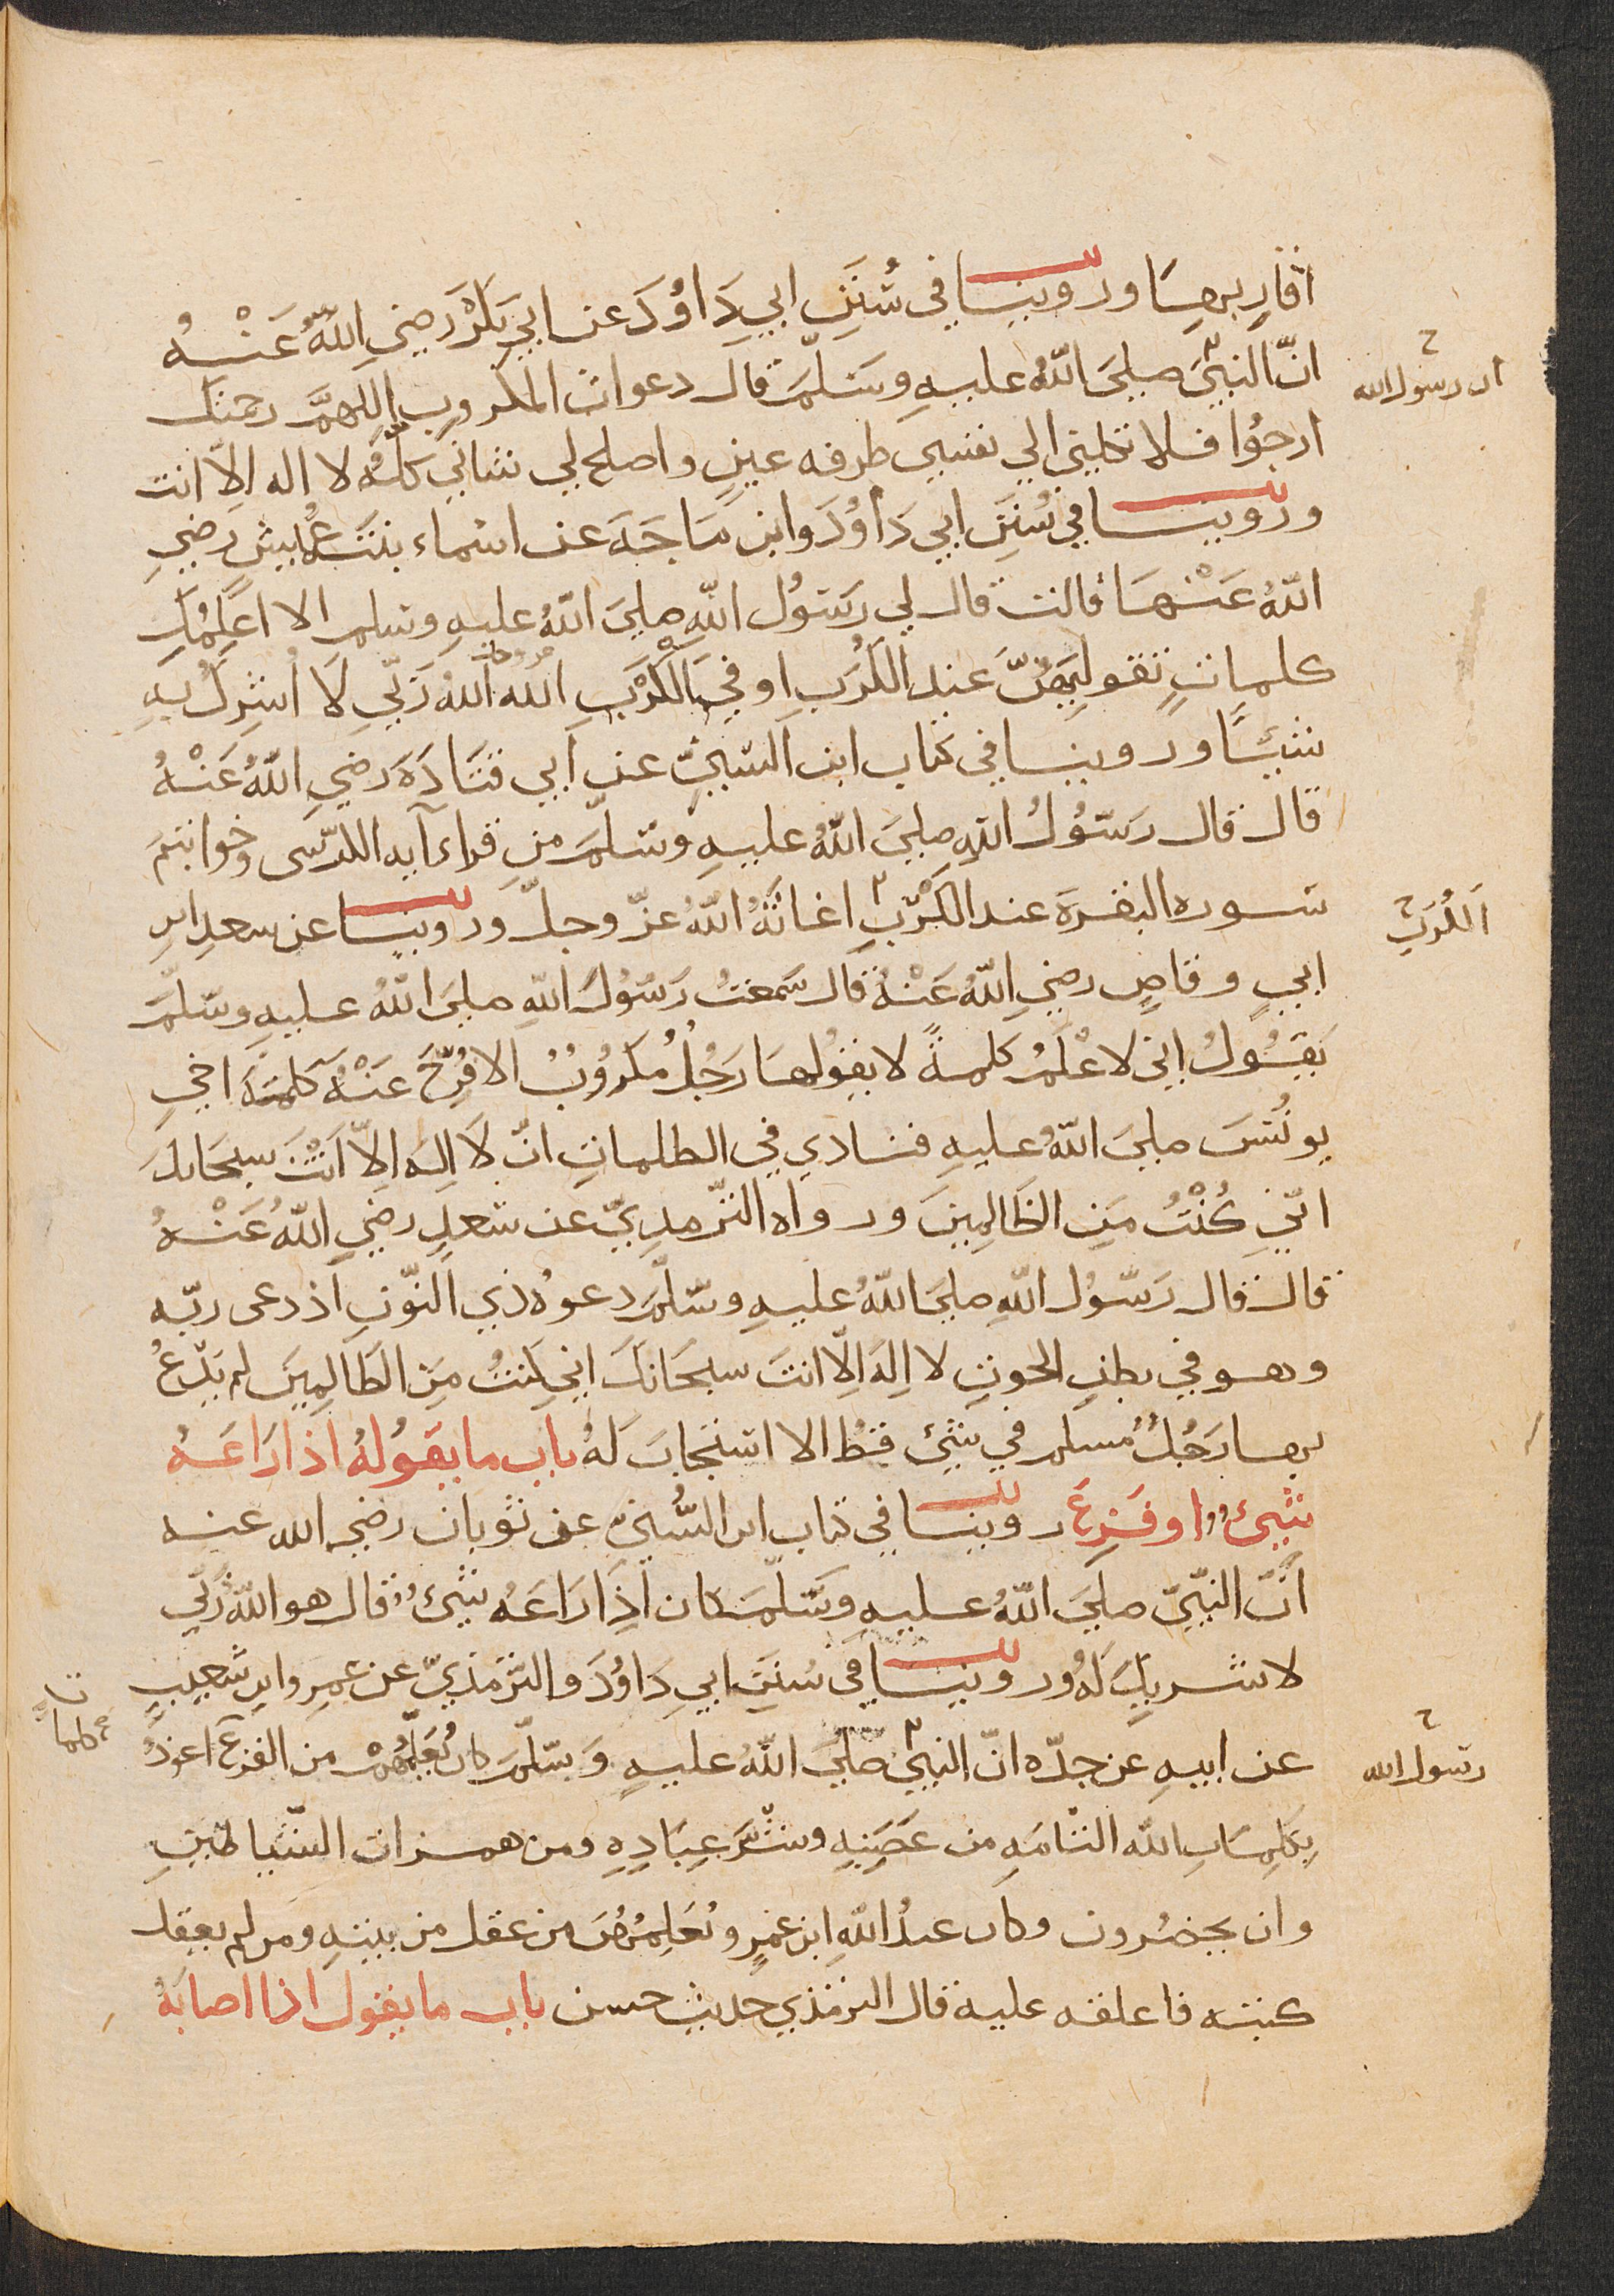 اقاربها وروينا في سُنَنِ ابي دَاوُدَ عن ابي بَكْرَ رَضِي اللهُ عَنْهُ
انّ النبيَّ صلىَ اللهُ عليهِ وسَلّمَ قال دعوات المكروب اللهمَّ رحمتك
ان رسول الله
ارجُوا فلا تكلني الي نفسي طرفه عينٍ واصلح لي شاني كلّهُ لا اله الاّ انت
وروينا في سُنَنِ ابي دَاوُدَ وابن مَاجَهَ عن اسماء بنت عُمَيْسٍ رَضِي
اللهُ عَنْهَا قالت قال لي رسَوُل اللهِ صلىَ اللهُ عليهِ وسلم الا اعَلِمُكِ
كلماتٍ تقوليهِنَّ عند الكَرْبِ او في الكَرْبِ الله اللهُ رَبّي لَا اُشرِكُ بهِ
شيئًا وروينا في كتاب ابن السّنّيّ عن ابي قتَادَهَ رضيِ اللهُ عَنْهُ
قال قال رسَوُلُ اللهِ صلىَ اللهُ عليهِ وسَلّمَ من قراء آيه الكرّسى وخواتيم
سوره البقرة عند الكَرْبِ اغاثَهُ اللهُ عزّ وجلّ وروينا عن سعدِ ابن
الكُرَبِ
ابيِ وقاصٍ رضيِ اللهُ عَنْهُ قال سَمعتُ رسَوُلَ اللهِ صلىَ اللهُ عليهِ وسَلّمَ
يَقوُلُ اني لاعْلَمُ كلمةً لا يقوُلها رَجُلٌ مكرُوُبٌ الا فُرِّجَ عَنْهُ كلمَةَ اخي
يونُسَ صلىَ اللهُ عليهِ فنادي في الظلماتِ انّ لَا اِلهَ اِلاّ اَنْتَ سبحَانكَ
انّيِ كُنْتُ مَنِ الظَالِمِينَ ورواه الترّمدِيّ عن سَعدٍ رضيِ اللهُ عَنْهُ
قال قال رَسَوُل اللهِ صلىَ اللهُ عليهِ وسَلّمَ دعوهُ ذي النوّنِ اذ دعى ربّه
وهو في بطنِ الحوتِ لا اِلهَ اِلاّ انتَ سبحَانكَ اني كنتُ مِنَ الظَالِمِينَ لم يَدْعُ
بها رَجُلٌ مُسلم في شيئ قطُ الا استَجابَ لَهُ باب ما يقوُلهُ اذا رَاعَهُ
شيئ او فَزِعَ روينا في كتاب ابن السُّنيّ عن ثوبان رضي الله عنه
انَّ النبّيّ صلىَ اللهُ عليهِ وسَلّمَ كان اذَا رَاعَهُ شيئ قال هو اللهُ رَبّي
لا شريكَ لَهُ وروينا في سُنَنِ ابي دَاوُدَ والترّمذيّ عن عمرو ابن شعيبٍ
عن ابيهِ عن جدّه انّ النبيّ صلىَ اللهُ عليهِ وسَلّمَ كان يُعَلِّمُهُمْ من الفزعَ اعوذُ
رسول الله
كلمات
بكلِمَاتِ الله التَّامَهِ من غضَبِهِ وشَرَّ عِبَادِهِ ومن همزات الشّياطينِ
وان يحضرُون وكان عبدُ اللهِ ابن عَمرٍ ويُعَلِمُهُنَ من عقل من بنيهِ ومن لم يعقِل
كتبه فاعلقه عليه قال الترمذي حديث حسن باب ما يقول اذا اصابَهُ